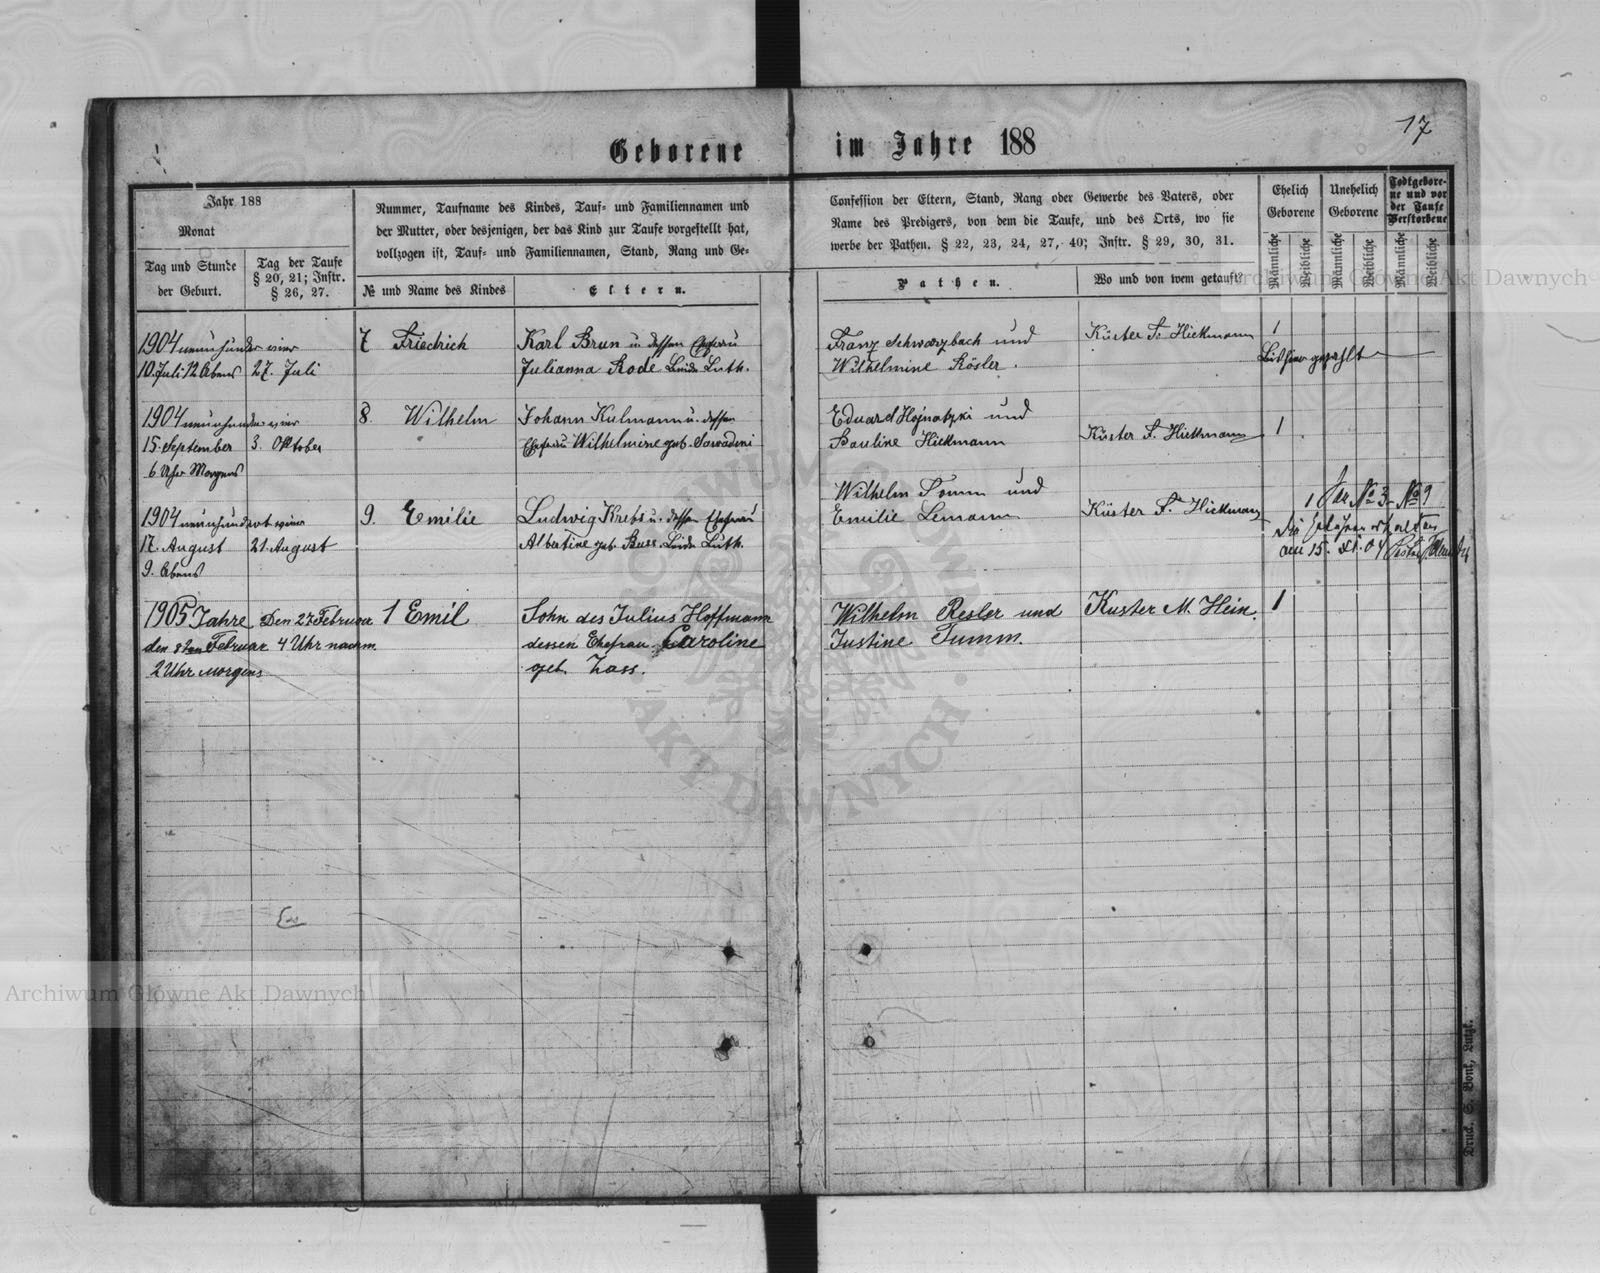 17
Geborene im Jahre 188
Jahr 188
Monat
Tag und Stunde
der Geburt.
Tag der Taufe
§ 20, 21; Instr.
§ 26, 27.
Nummer, Taufname des Kindes, Tauf- und Familiennamen und
der Mutter, oder desjenigen, der das Kind zur Taufe vorgestellt hat,
vollzogen ist, Tauf- und Familiennamen, Stand, Rang und Ge-
№ und Name des Kindes
Eltern.
Confession der Eltern, Stand, Rang oder Gewerbe des Vaters, oder
Name des Predigers, von dem die Taufe, und des Orts, wo sie
werbe der Pathen. § 22, 23, 24, 27, 40; Instr. § 29, 30, 31.
Pathen.
Wo und von wem getauft?
Ehelich
Geborene
Unehelich
Geborene
Todtgebore-
ne und vor
der Taufe
Verstorbene
Männliche
Weibliche
Männliche
Weibliche
Männliche
Weibliche
1904
10 Juli 12 Abens
27. Juli
7 Friedrich
Karl Brun u dessen Ehefrau
Julianna Rode Beide Luth.
Franz Schwarzbach und
Wilhelmine Rösler.
Küster F. Hickmann
1
gezahlt
1904
15. September
6 Uhr Morgens
3. Oktober
8. Wilhelm
Johann Kulmann u. dessen
Ehefrau Wilhelmine geb.
Eduard und
Pauline Hickmann
Küster F. Hickmann
1
1904
17. August
9. Abens
21. August
9. Emilie
Ludwig Krebs u. dessen Ehefrau
Albertine geb. Buss. Beide Luth.
Wilhelm Tomm und
Emilie Lemann
Küster F. Hickmann
1
№ 3 - № 9
Die
am 15. XI. 04
1905 Jahre
den 8ten Februar
2 Uhr Morgens
Den 27 Februar
4 Uhr nachm.
1 Emil
Sohn des Julius Hoffmann
dessen Ehefrau Caroline
geb. Zass.
Wilhelm Resler und
Justine Tumm.
Kuster M. Hein.
1
Druck. S. Bonk, Lutzk.
Archiwum Główne Akt Dawnych
Archiwum Główne Akt Dawnych
ARCHIWUM GŁÓWNE AKT DAWNYCH